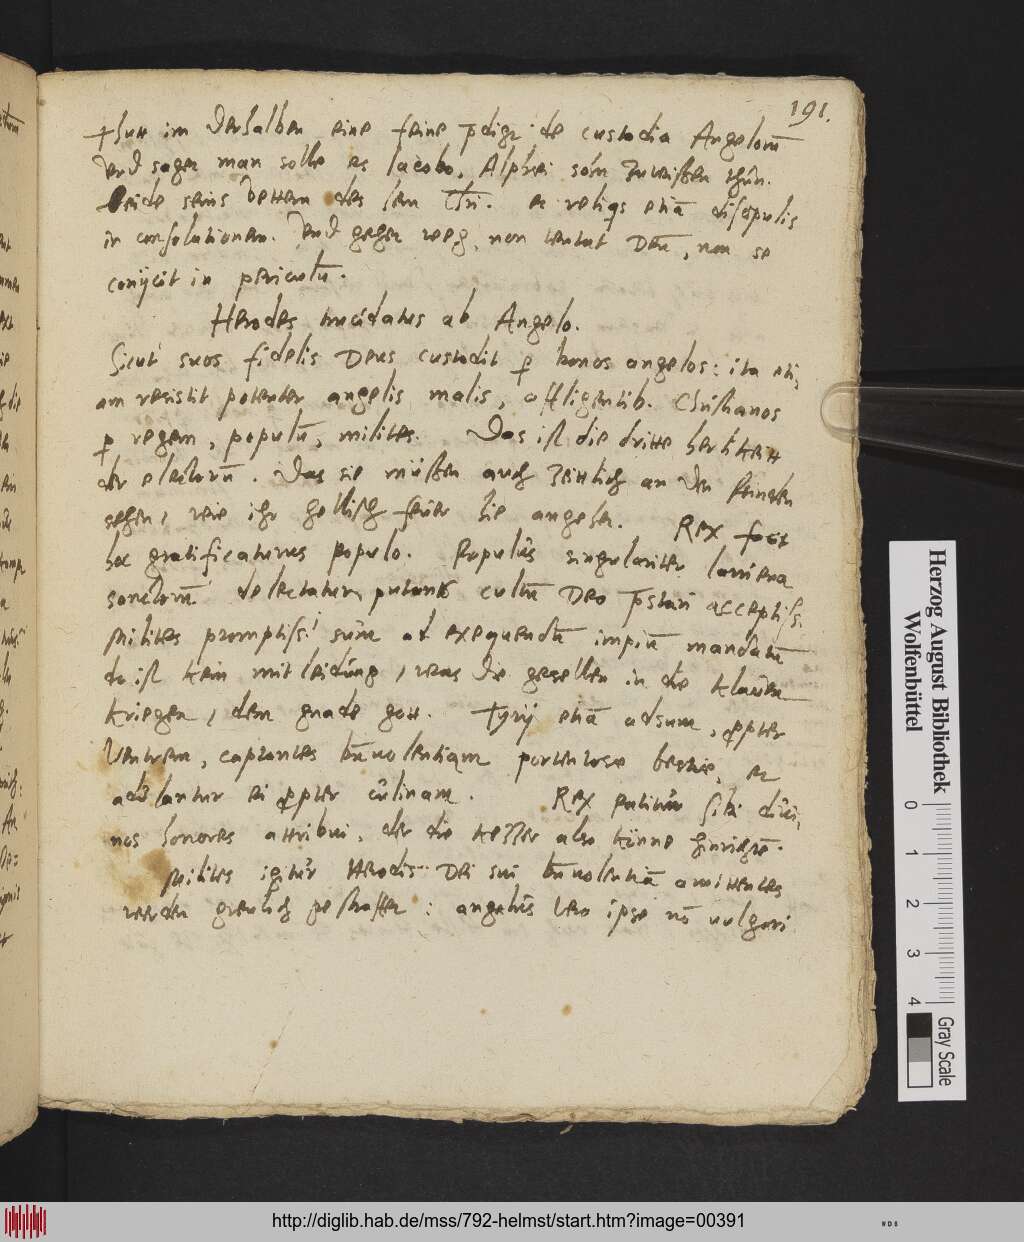 191.
thutt im derhalben eine feine p̄digt de custodia Angelorū
vnd sagen man solle es Iacobo, Alphei sohn zuwissen thūn.
beide seins vettern des herrn Chri. et reliqs etiā discipulis
in consolationem. Vnd gegen weg, non tentat Deū, non se
coniycit in periculū.
Herodes trucidatus ab Angelo.
Sicut suos fidelis Deus custodit p bonos angelos: ita eti,
am resistit potenter angelis malis, affligentib. Christianos
p regem, populū, milites. Das ist die dritte herlikeitt
der electorū. Das sie müssen auch zeittlich an den feinden
sehen, wie ihr hellisch feuer sie angehet. Rex fecit
hoc gratificaturus populo. Populus singulariter laniena
sanctorū delectatur, putans cultū Deo p̄stari acceptiss.
Milites promptiss. sunt ad exequendū impiū mandatū
do ist kein mitleidung, was die gesellen in die klauen
kriegen, dem gnade gott. Tyrij etiā adsunt, ppter
Ventrem, captantes bn̄uolentiam portentosae bestiae, et
adulantur ei ppter culinam. Rex patitur sibi diui,
nos honores attribui, der die ketzer also künne hinrichtē.
Milites igitur Herodis Dei sui bn̄uolentiā amittentes
werden greulich gestrafft: angelus vero ipse nō vulgari
Herzog August Bibliothek
Wolfenbüttel
0 1 2 3 4
Gray Scale
http://diglib.hab.de/mss/792-helmst/start.htm?image=00391